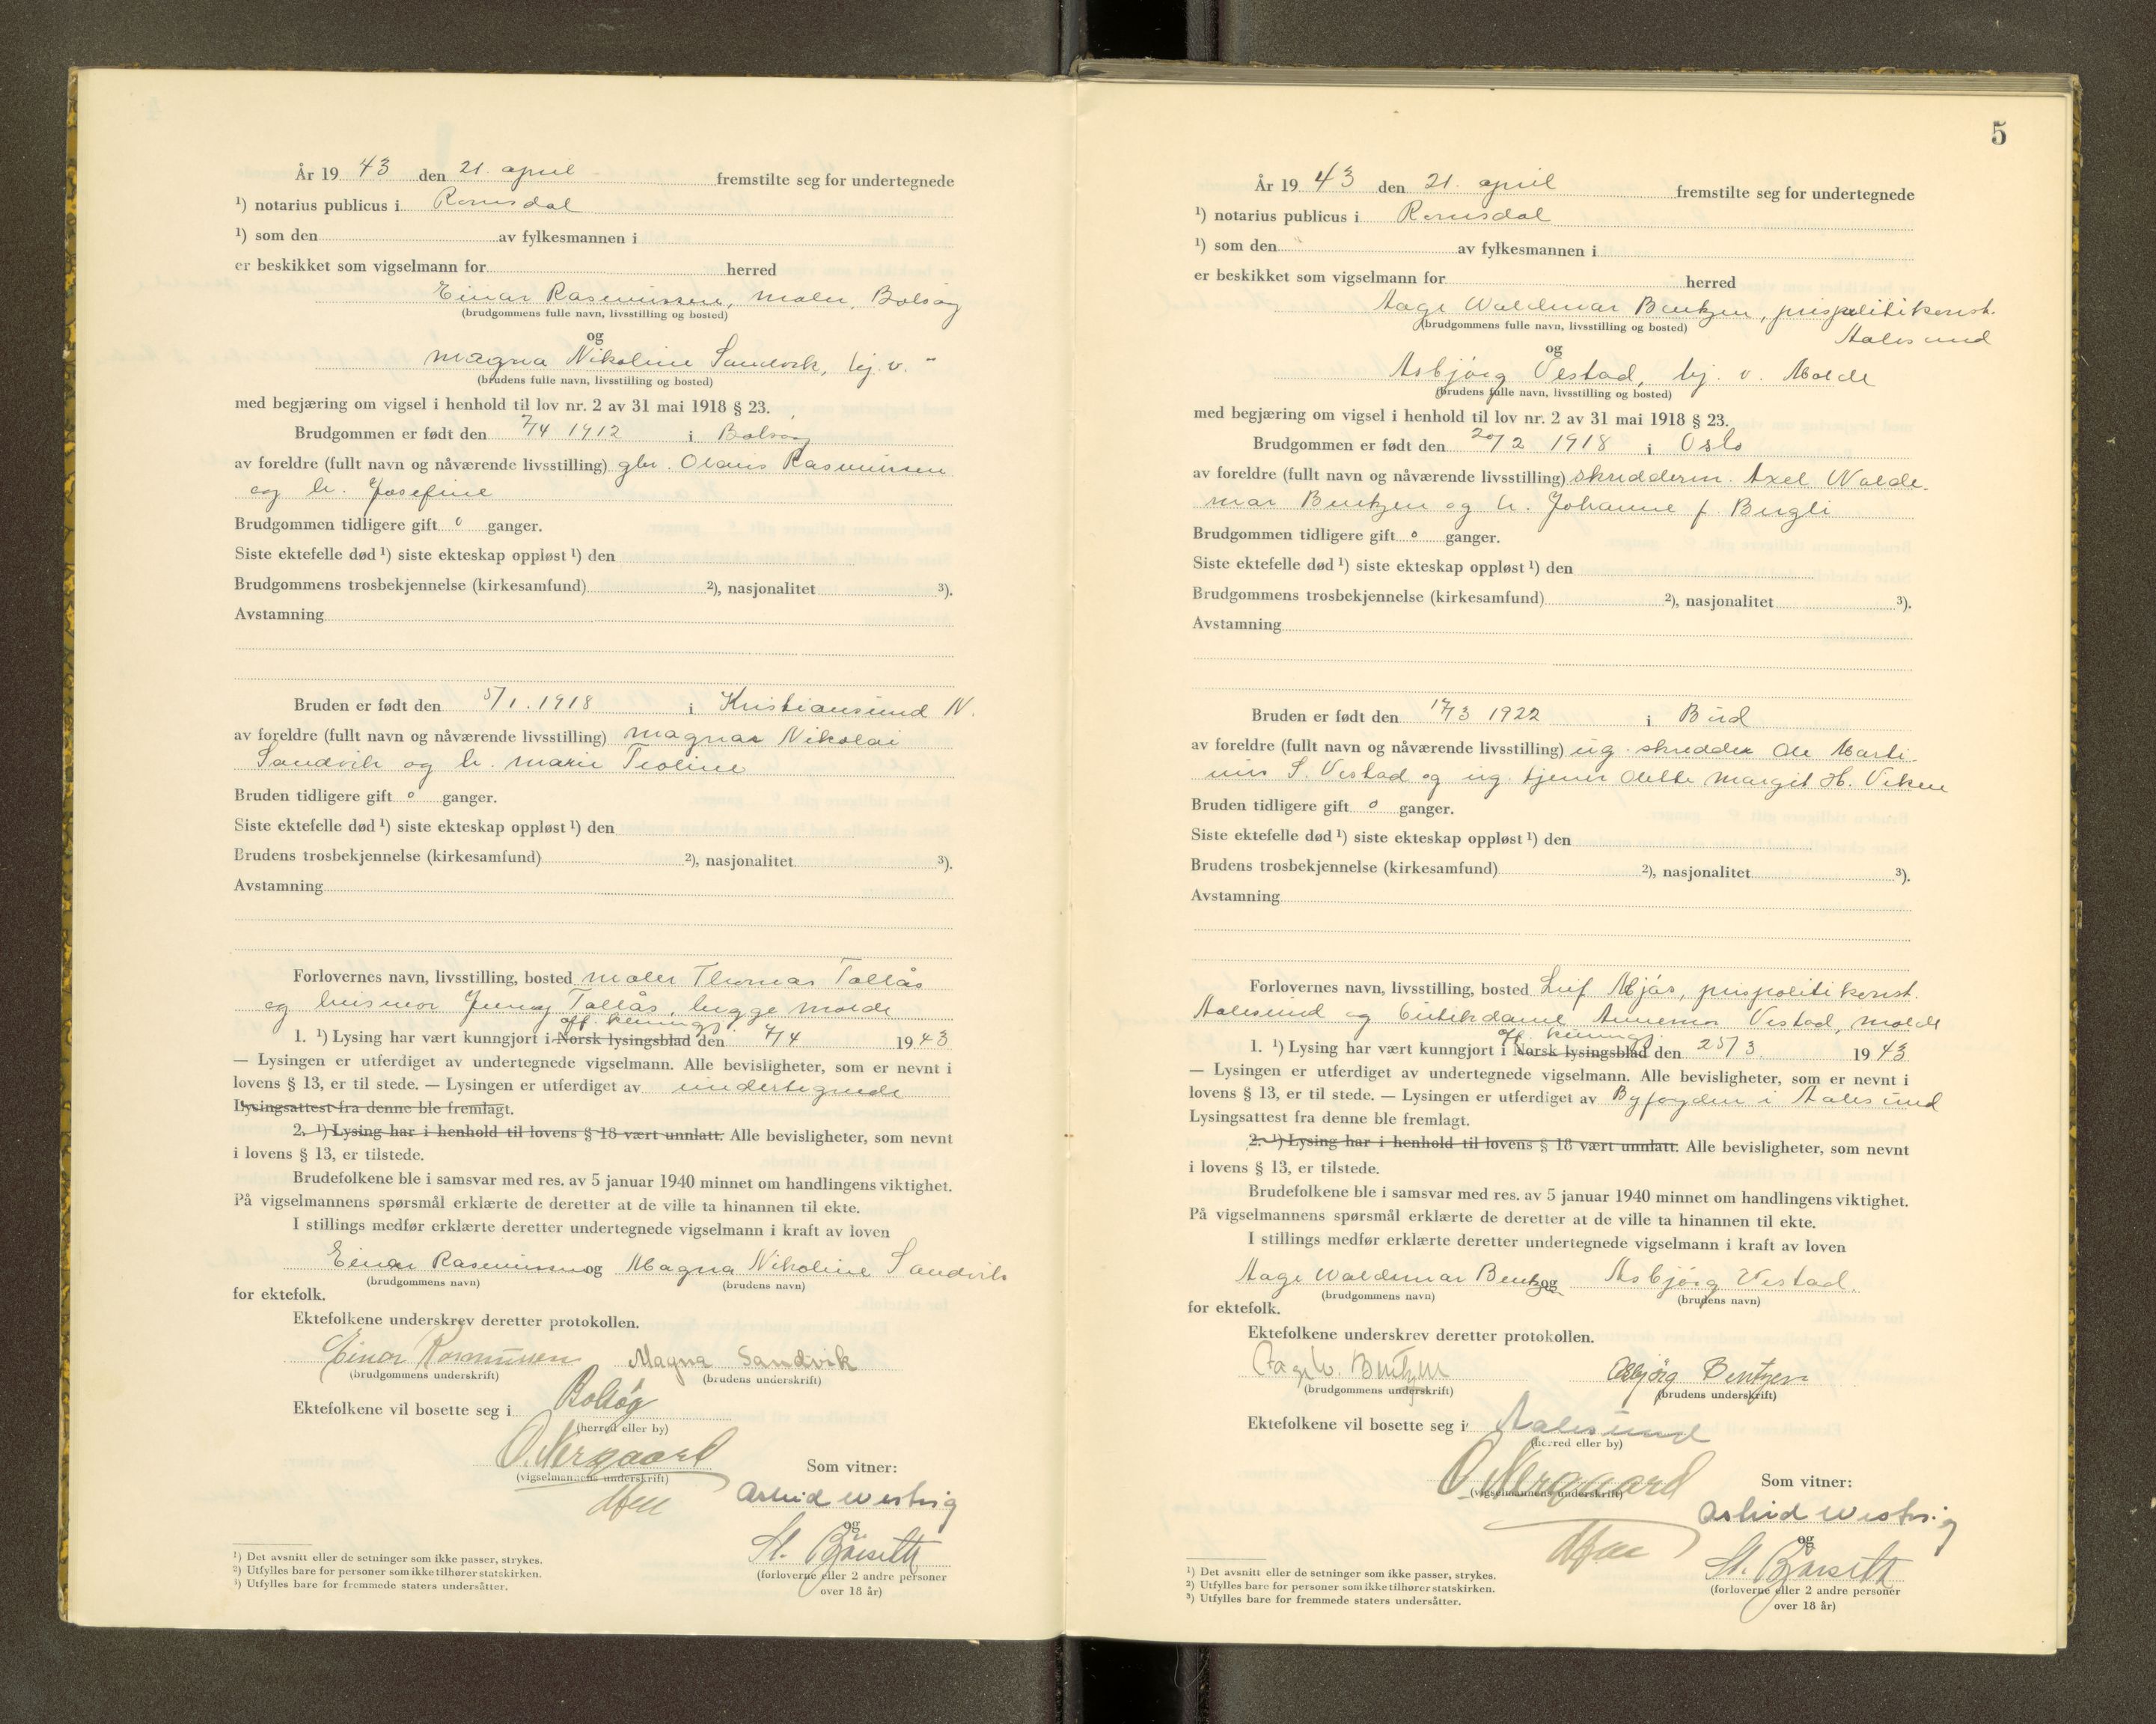 År 19 43 den 21. april fremstilte seg for undertegnede
¹) notarius publicus i Romsdal
¹) som den av fylkesmannen i
er beskikket som vigselmann for herred
Einar Rasmussen, maler, Bolsøy
(brudgommens fulle navn, livsstilling og bosted)
og
Magna Nikoline Sandvik, hj. v. "
(brudens fulle navn, livsstilling og bosted)
med begjæring om vigsel i henhold til lov nr. 2 av 31 mai 1918 § 23.
Brudgommen er født den 7/4 1912 i Bolsøy
av foreldre (fullt navn og nåværende livsstilling) gbr. Olaus Rasmussen
og h. Josefine
Brudgommen tidligere gift 0 ganger.
Siste ektefelle død ¹) siste ekteskap oppløst ¹) den
Brudgommens trosbekjennelse (kirkesamfund) ²), nasjonalitet ³).
Avstamning
Bruden er født den 5/1. 1918 i Kristiansund N.
av foreldre (fullt navn og nåværende livsstilling) Magnar Nikolai
Sandvik og h. Marie Teoline
Bruden tidligere gift 0 ganger.
Siste ektefelle død ¹) siste ekteskap oppløst ¹) den
Brudens trosbekjennelse (kirkesamfund) ²), nasjonalitet ³).
Avstamning
Forlovernes navn, livsstilling, bosted maler Thomas Tallås
og husmor Jenny Tallås, begge Molde
off. kunngj.
1. ¹) Lysing har vært kunngjort i Norsk lysingsblad den 7/4 19 43
— Lysingen er utferdiget av undertegnede vigselmann. Alle bevisligheter, som er nevnt i
lovens § 13, er til stede. — Lysingen er utferdiget av undertegnede
Lysingsattest fra denne ble fremlagt.
2. ¹) Lysing har i henhold til lovens § 18 vært unnlatt. Alle bevisligheter, som nevnt
i lovens § 13, er tilstede.
Brudefolkene ble i samsvar med res. av 5 januar 1940 minnet om handlingens viktighet.
På vigselmannens spørsmål erklærte de deretter at de ville ta hinannen til ekte.
I stillings medfør erklærte deretter undertegnede vigselmann i kraft av loven
Einar Rasmussen og Magna Nikoline Sandvik
(brudgommens navn) (brudens navn)
for ektefolk.
Ektefolkene underskrev deretter protokollen.
Einar Rasmussen Magna Sandvik
(brudgommens underskrift) (brudens underskrift)
Ektefolkene vil bosette seg i Bolsøy
(herred eller by)
O. Nergaard
(vigselmannens underskrift)
Som vitner:
Astrid Westvig
og
St. Bjørseth
(forloverne eller 2 andre personer
over 18 år)
¹) Det avsnitt eller de setninger som ikke passer, strykes.
²) Utfylles bare for personer som ikke tilhører statskirken.
³) Utfylles bare for fremmede staters undersåtter.
5
År 19 43 den 21. april fremstilte seg for undertegnede
¹) notarius publicus i Romsdal
¹) som den av fylkesmannen i
er beskikket som vigselmann for herred
Aage Waldemar Bentzen, prispolitikonst.
(brudgommens fulle navn, livsstilling og bosted)
Aalesund
og
Asbjörg Vestad, hj. v. Molde
(brudens fulle navn, livsstilling og bosted)
med begjæring om vigsel i henhold til lov nr. 2 av 31 mai 1918 § 23.
Brudgommen er født den 20/2 1918 i Oslo
av foreldre (fullt navn og nåværende livsstilling) skredderm. Axel Walde-
mar Bentzen og h. Johanne f. Bugli
Brudgommen tidligere gift 0 ganger.
Siste ektefelle død ¹) siste ekteskap oppløst ¹) den
Brudgommens trosbekjennelse (kirkesamfund) ²), nasjonalitet ³).
Avstamning
Bruden er født den 17/3 1922 i Bud
av foreldre (fullt navn og nåværende livsstilling) ug. skredder Ole Marti-
nus S. Vestad og ug. tjener Olette Margit H. Viken
Bruden tidligere gift 0 ganger.
Siste ektefelle død ¹) siste ekteskap oppløst ¹) den
Brudens trosbekjennelse (kirkesamfund) ²), nasjonalitet ³).
Avstamning
Forlovernes navn, livsstilling, bosted Leif Mjås, prispolitikonst.
Aalesund og butikdame Annemor Vestad, Molde
off. kunngj.
1. ¹) Lysing har vært kunngjort i Norsk lysingsblad den 25/3. 19 43
— Lysingen er utferdiget av undertegnede vigselmann. Alle bevisligheter, som er nevnt i
lovens § 13, er til stede. — Lysingen er utferdiget av Byfogden i Aalesund
Lysingsattest fra denne ble fremlagt.
2. ¹) Lysing har i henhold til lovens § 18 vært unnlatt. Alle bevisligheter, som nevnt
i lovens § 13, er tilstede.
Brudefolkene ble i samsvar med res. av 5 januar 1940 minnet om handlingens viktighet.
På vigselmannens spørsmål erklærte de deretter at de ville ta hinannen til ekte.
I stillings medfør erklærte deretter undertegnede vigselmann i kraft av loven
Aage Waldemar Bentzen og Asbjörg Vestad.
(brudgommens navn) (brudens navn)
for ektefolk.
Ektefolkene underskrev deretter protokollen.
Aage W. Bentzen Asbjörg Bentzen
(brudgommens underskrift) (brudens underskrift)
Ektefolkene vil bosette seg i Aalesund
(herred eller by)
O. Nergaard
(vigselmannens underskrift)
Som vitner:
Astrid Westvig
og
St. Bjørseth
(forloverne eller 2 andre personer
over 18 år)
¹) Det avsnitt eller de setninger som ikke passer, strykes.
²) Utfylles bare for personer som ikke tilhører statskirken.
³) Utfylles bare for fremmede staters undersåtter.